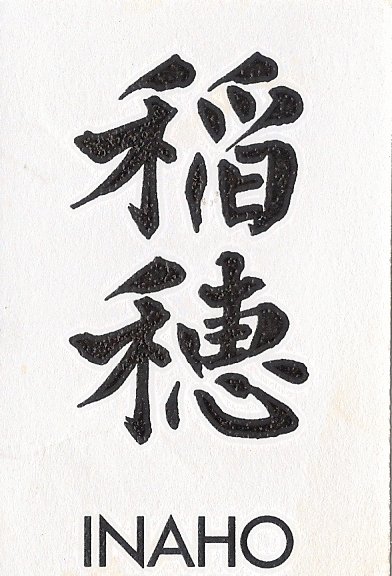 稲穂
INAHO